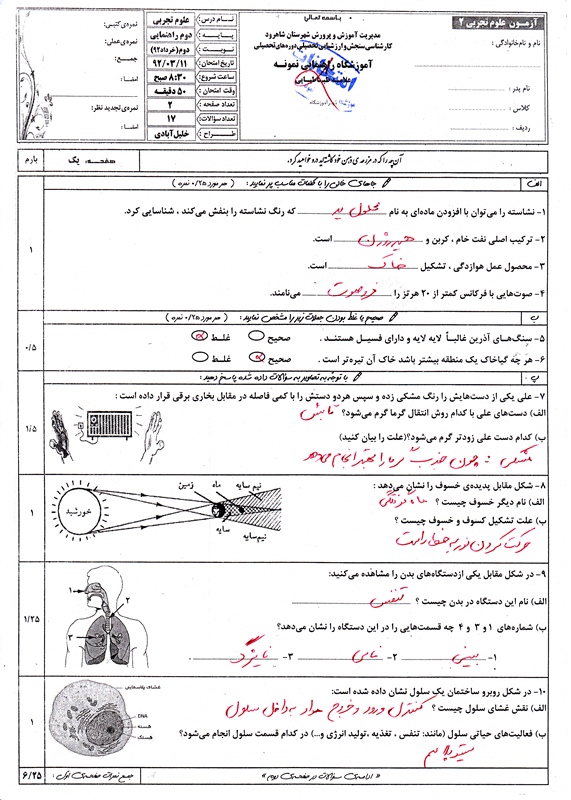 باسمه تعالی
آزمـون علوم تجربی ۲
نام و نام‌خانوادگی :
نام پدر :
کلاس :
ردیف :
مدیریت آموزش و پرورش شهرستان شاهرود
کارشناسی سنجش و ارزشیابی تحصیلی دوره‌های تحصیلی
آموزشگاه راهنمایی نمونه
نـام درس: علوم تجربی
پـایــه: دوم راهنمایی
نـوبـت: دوم(خرداد۹۲)
تاریخ امتحان: ۹۲/۰۳/۱۱
ساعت شروع: ۸:۳۰ صبح
وقت امتحان: ۵۰ دقیقه
تعداد صفحه: ۲
تعداد سؤالات: ۱۷
طـراح: خلیل‌آبادی
نمره‌ی کتبی:
نمره‌ی عملی:
جمـع:
امضـا:
نمره‌ی تجدید نظر:
امضـا:
صفحـه: یک
بارم
الف
جاهای خالی را با کلمات مناسب پر نمایید: (هر مورد ۰/۲۵ نمره)
۱- نشاسته را می‌توان با افزودن ماده‌ای به نام محلول ید که رنگ نشاسته را بنفش می‌کند ، شناسایی کرد.
۲- ترکیب اصلی نفت خام ، کربن و هیدروژن است.
۳- محصول عمل هوازدگی ، تشکیل خاک است.
۴- صوت‌هایی با فرکانس کمتر از ۲۰ هرتز را فروصوت می‌نامند.
۱
ب
صحیح یا غلط بودن جملات زیر را مشخص نمایید: (هر مورد ۰/۲۵ نمره)
۵- سنگ‌های آذرین غالبـاً لایه لایه و دارای فسیـل هستنـد . صحیح غلـط
۶- هر چه گیاخاک یک منطقه بیشتر باشد خاک آن تیره‌تر است . صحیح غلـط
۰/۵
پ
با توجه به تصاویر به سؤالات داده شده پاسخ دهید:
۷- علی یکی از دست‌هایش را رنگ مشکی زده و سپس هردو دستش را با کمی فاصله در مقابل بخاری برقی قرار داده است :
الف) دست‌های علی با کدام روش انتقال گرما گرم می‌شود؟ تابش
ب) کدام دست علی زودتر گرم می‌شود؟(علت را بیان کنید)
مشکی : چون جذب گرما را بهتر انجام می‌دهد
۱/۵
۸- شکل مقابل پدیده‌ی خسوف را نشان می‌دهد :
الف) نام دیگر خسوف چیست ؟ ماه گرفتگی
ب) علت تشکیل کسوف و خسوف چیست ؟
حرکت کردن نور به خط راست
خورشید
زمین
ماه
نیم سایه
سایه
نیم‌سایه
۱
۹- در شکل مقابل یکی ازدستگاه‌های بدن را مشاهده می‌کنید:
الف) نام این دستگاه در بدن چیست ؟ تنفس
ب) شماره‌های ۱و ۳ و ۴ چه قسمت‌هایی را در این دستگاه را نشان می‌دهد؟
۱- بینی ۲- نای ۳- نایژک
۱
۲
۳
۱/۲۵
۱۰- در شکل روبرو ساختمان یک سلول نشان داده شده است:
الف) نقش غشای سلول چیست ؟ کنترل ورود و خروج مواد به داخل سلول
ب) فعالیت‌های حیاتی سلول (مانند: تنفس ، تغذیه ،تولید انرژی و...) در کدام قسمت سلول انجام می‌شود؟
سیتوپلاسم
غشای پلاسمایی
DNA
هسته
هستک
۱
« ادامه‌ی سؤالات در صفحه‌ی دوم »
جمع نمرات صفحه‌ی اول:
۶/۲۵